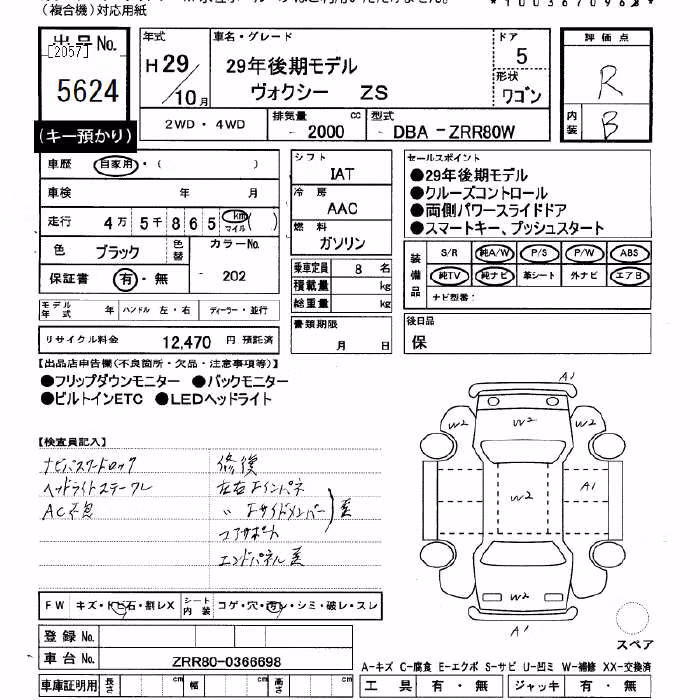 (複合機)対応用紙
出品No.
[2057]
5624
(キー預かり)
年式
H29/10月
車名・グレード
29年後期モデル
ヴォクシー ZS
ドア
5
形状
ワゴン
評価点
R
内装
B
2WD・4WD
排気量 cc
- 2000
型式
- DBA - ZRR80W
車歴 自家用・( )
車検 年 月
走行 4万5千865 km マイル ( )
色 ブラック 色替 カラーNo.
保証書 有・無 - 202
モデル年式 年 ハンドル 左・右 ディーラー・並行
リサイクル料金 12,470 円 預託済
シフト
IAT
冷房
AAC
燃料
ガソリン
乗車定員 8 名
積載量 kg
総重量 kg
書類期限
月 日
セールスポイント
●29年後期モデル
●クルーズコントロール
●両側パワースライドドア
●スマートキー、プッシュスタート
装備品
S/R 純A/W P/S P/W ABS
純TV 純ナビ 革シート 外ナビ エアB
ナビ型番:
後日品
保
【出品店申告欄(不良箇所・欠品・注意事項等)】
●フリップダウンモニター ●バックモニター
●ビルトインETC ●LEDヘッドライト
【検査員記入】
ナビパスワードロック 修復
左右
コアサポート
エンドパネル
A1
W2
W2 W2
W2
A1
W2
A1
スペア
FW キズ・トビ石・割レX シート内装 コゲ・穴・汚レ・シミ・破レ・スレ
登録No.
車台No. ZRR80-0366698
車庫証明用 長さ cm 幅 cm 高さ cm
A-キズ C-腐食 E-エクボ S-サビ U-凹ミ W-補修 XX-交換済
工具 有・無 ジャッキ 有・無